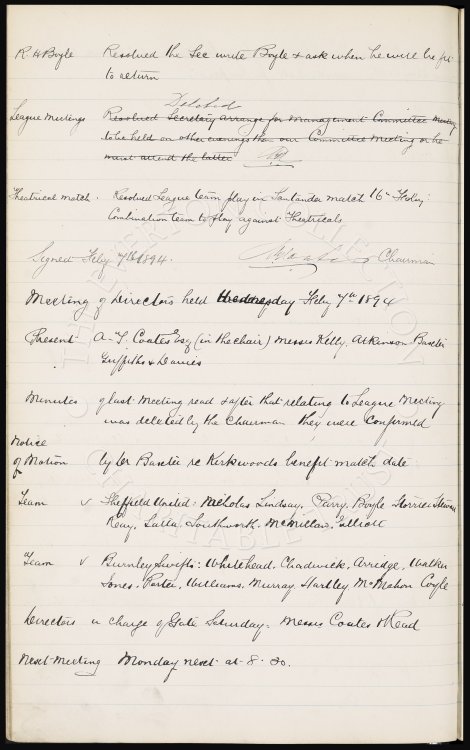 R. H Boyle Resolved the Sec write Boyle & ask when he will be fit
to return
Deleted
League Meetings Resolved Secretary arrange for Management Committee meeting
to be held on other evenings than our Committee Meeting or he
must attend the latter
Theatrical match. Resolved League team play in Santander match 16th Feby
Combination team to play against Theatricals
Signed Feby 7th 1894. Chairman
Meeting of Directors held Wednesday Feby 7th 1894
Present A. T. Coates Esq (in the chair) Messrs Kelly. Atkinson Baxter
Griffiths & Davies
Minutes of last meeting read & after that relating to League Meeting
was deleted by the Chairman they were confirmed
Notice
of Motion by Dr Baxter re Kirkwoods benefit match date
Team v Sheffield United: Nicholas Lindsay. Parry. Boyle Storrier Stewart
Reay, Latta, Southworth. McMillan. Elliott
Team v Burnley Swifts: Whitehead. Chadwick. Arridge. Walker
Jones. Porter. Williams. Murray Hartley McMahon Coyle
Directors in charge of Gate Saturday. Messrs Coates & Read
Next Meeting Monday next at 8.30.
THE EVERTON COLLECTION
CHARITABLE TRUST